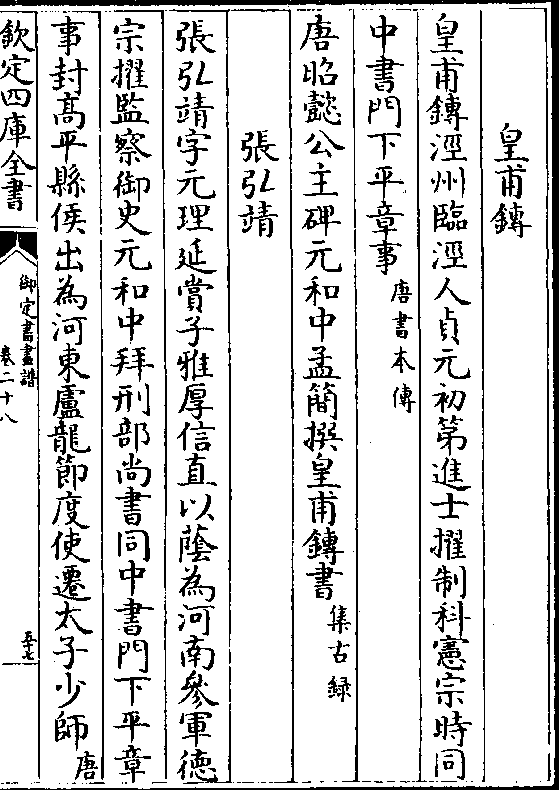 皇甫鏄
皇甫鏄涇州臨涇人貞元初第進士擢制科憲宗時同
中書門下平章事唐書本傳
唐昭懿公主碑元和中孟簡撰皇甫鏄書集古録
張弘靖
張弘靖字元理延賞子雅厚信直以蔭為河南參軍德
宗擢監察御史元和中拜刑部尚書同中書門下平章
事封髙平縣侯出為河東盧龍節度使遷太子少師唐
欽定四庫全書
御定書畫譜
卷二十八
五十七